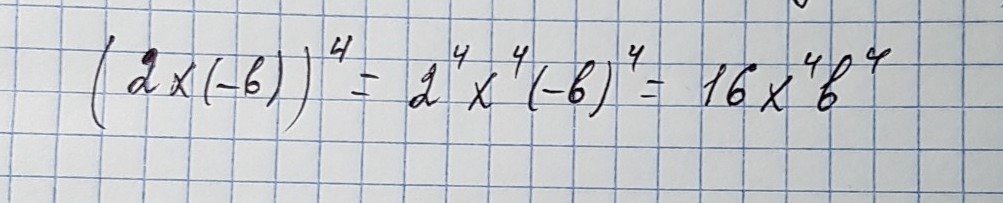 (2x(-b))⁴ = 2⁴x⁴(-b)⁴ = 16x⁴b⁴